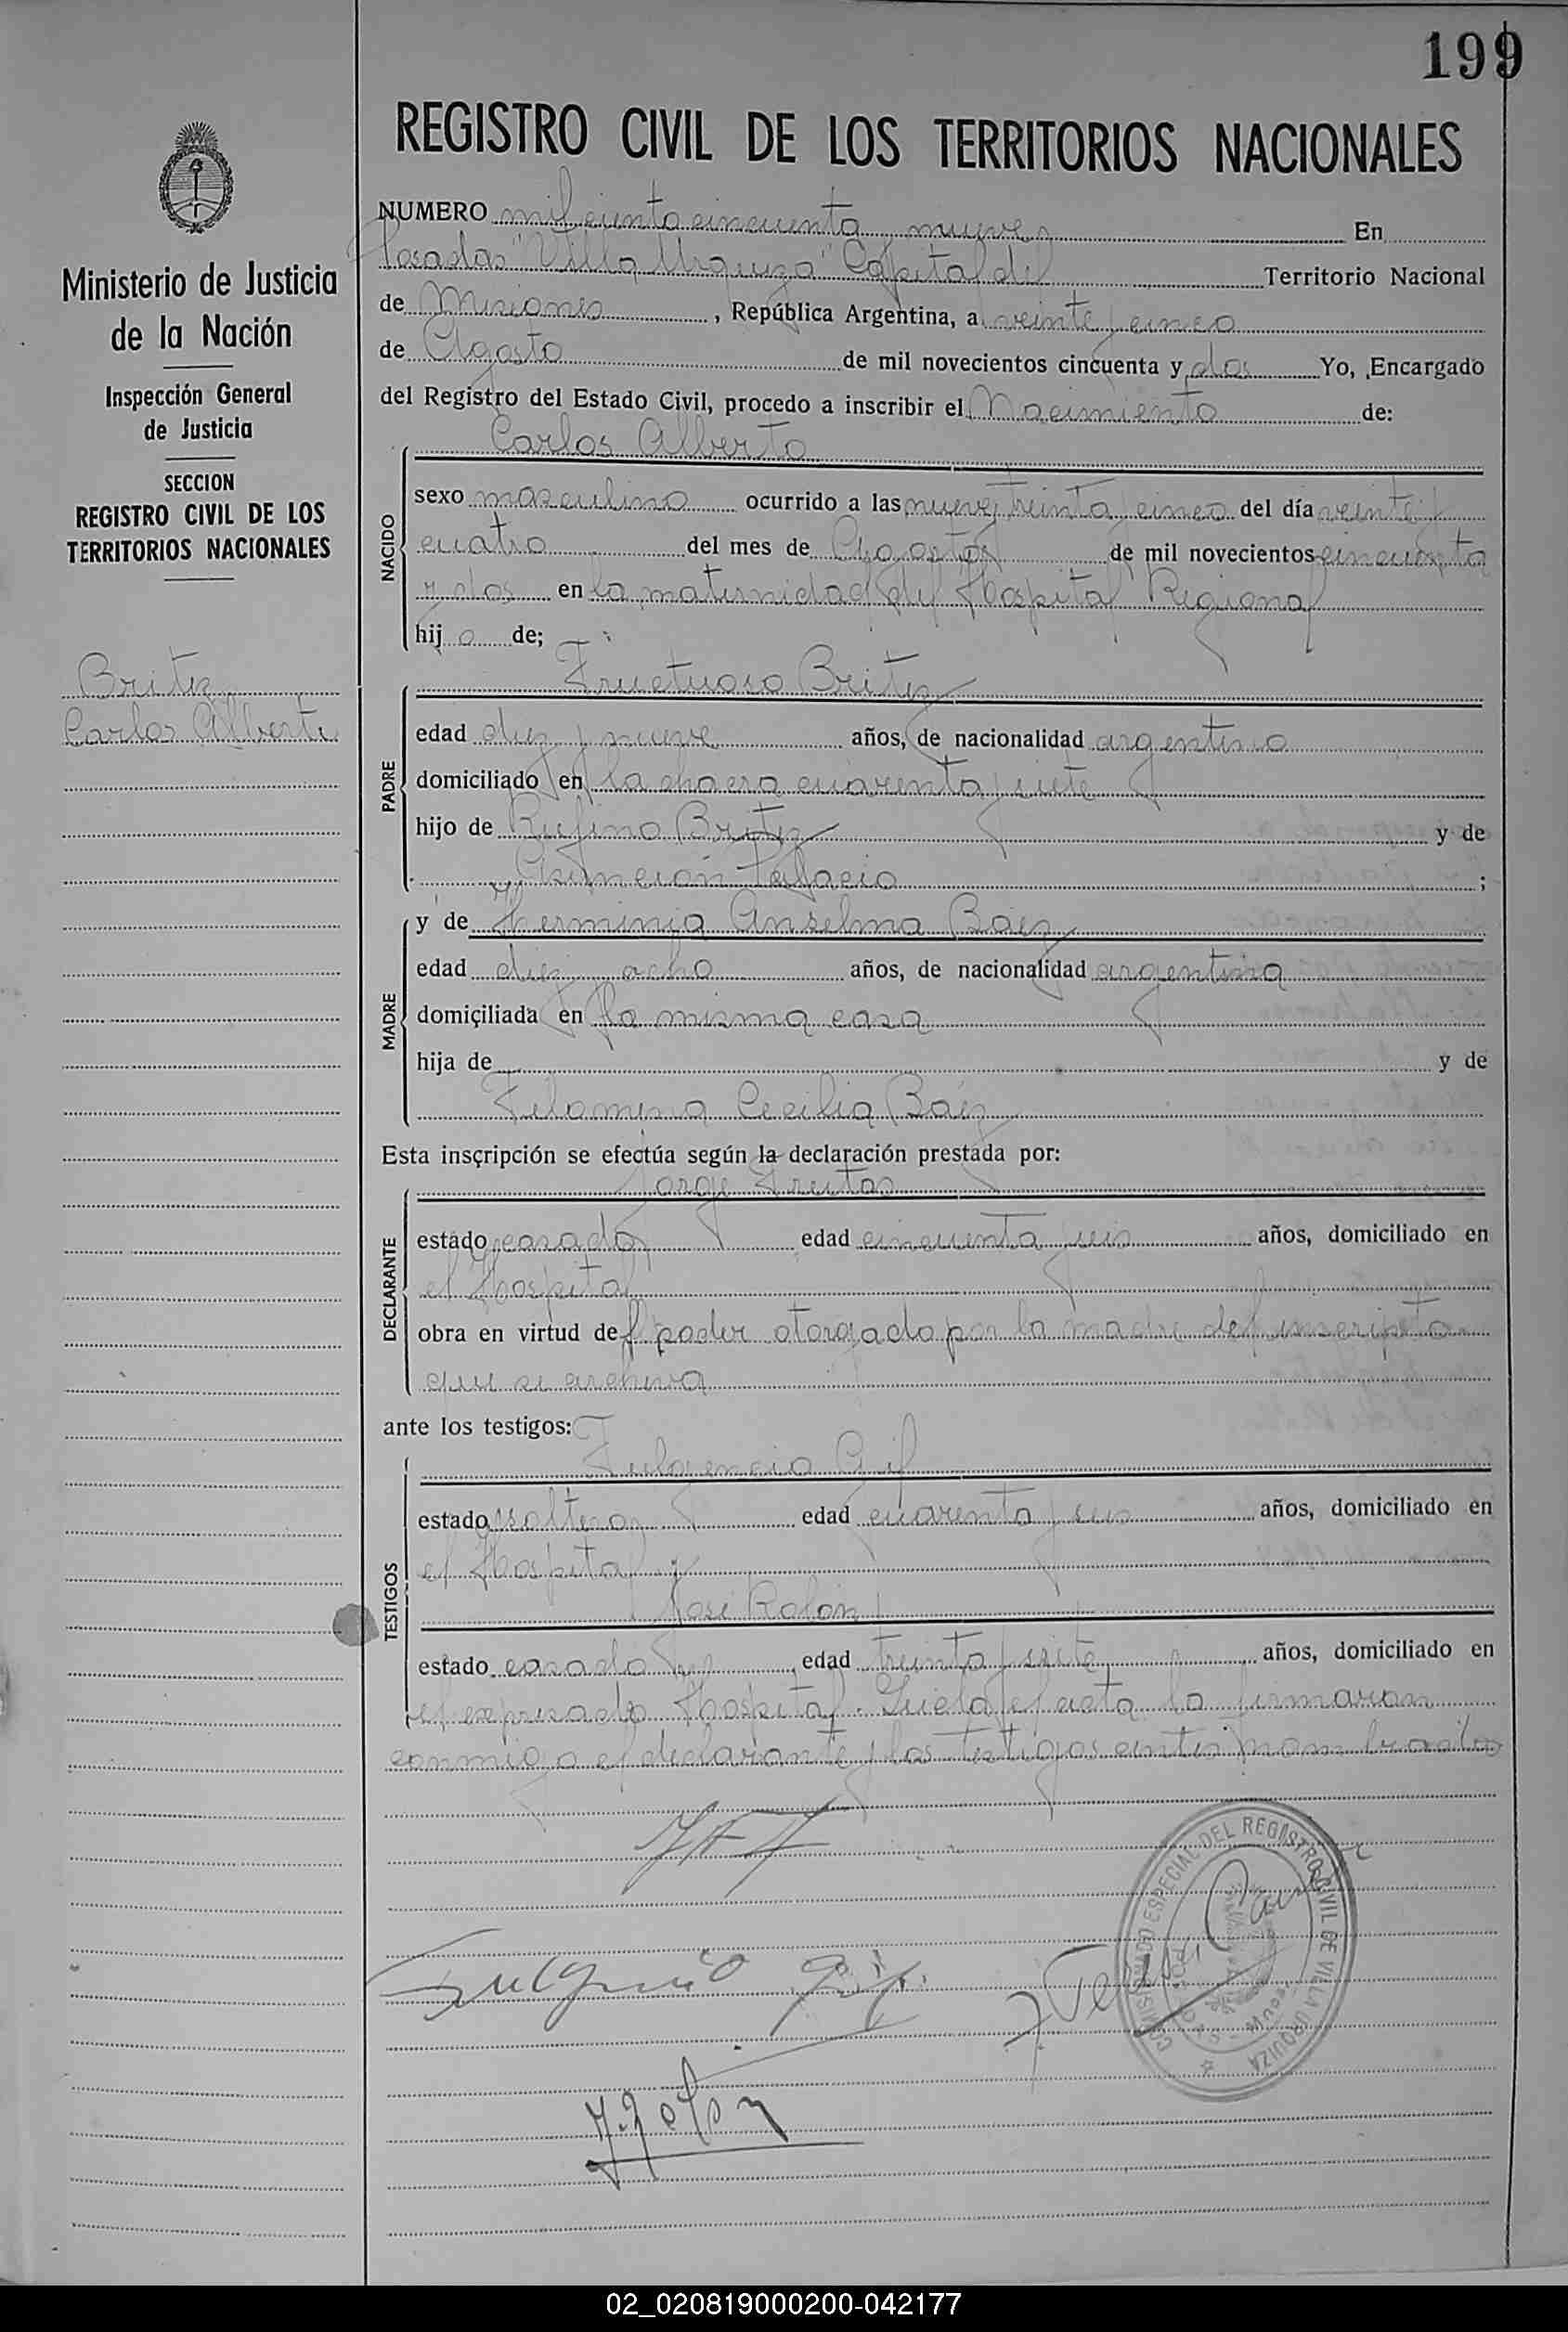 199
REGISTRO CIVIL DE LOS TERRITORIOS NACIONALES
Ministerio de Justicia
de la Nación
Inspección General
de Justicia
SECCION
REGISTRO CIVIL DE LOS
TERRITORIOS NACIONALES
Britez
Carlos Alberto
NUMERO mil ciento cincuenta y nueve En
Posadas "Villa Urquiza" Capital del Territorio Nacional
de Misiones, República Argentina, a veinte y cinco
de Agosto de mil novecientos cincuenta y dos Yo, Encargado
del Registro del Estado Civil, procedo a inscribir el Nacimiento de:
Carlos Alberto
NACIDO
sexo masculino ocurrido a las nueve y treinta y cinco del día veinte y
cuatro del mes de Agosto de mil novecientos cincuenta
y dos en la maternidad del Hospital Regional
hijo de;
Fructuoso Britez
PADRE
edad diez y nueve años, de nacionalidad argentino
domiciliado en la chacra cuarenta y siete
hijo de Rufino Britez y de
Asunción Palacio ;
MADRE
y de Herminia Anselma Báez
edad diez y ocho años, de nacionalidad argentina
domiciliada en la misma casa
hija de y de
Filomena Cecilia Báez
Esta inscripción se efectúa según la declaración prestada por:
Jorge Freitas
DECLARANTE
estado casado edad cincuenta y seis años, domiciliado en
el Hospital
obra en virtud del poder otorgado por la madre del inscripto
que se archiva
ante los testigos:
Fulgencio Gil
TESTIGOS
estado soltero edad cuarenta y seis años, domiciliado en
el Hospital y
José Rolón
estado casado edad treinta y siete años, domiciliado en
el expresado Hospital. Leída el acta la firmaron
conmigo el declarante y los testigos antes nombrados
Fulgencio Gil
J. Rolon
COMISIONADO ESPECIAL DEL REGISTRO CIVIL DE VILLA URQUIZA
02_020819000200-042177